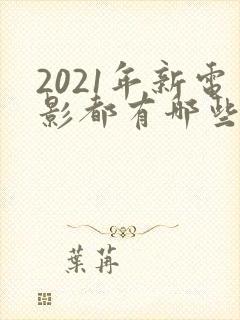 2021年新电
影都有哪些
葉苒